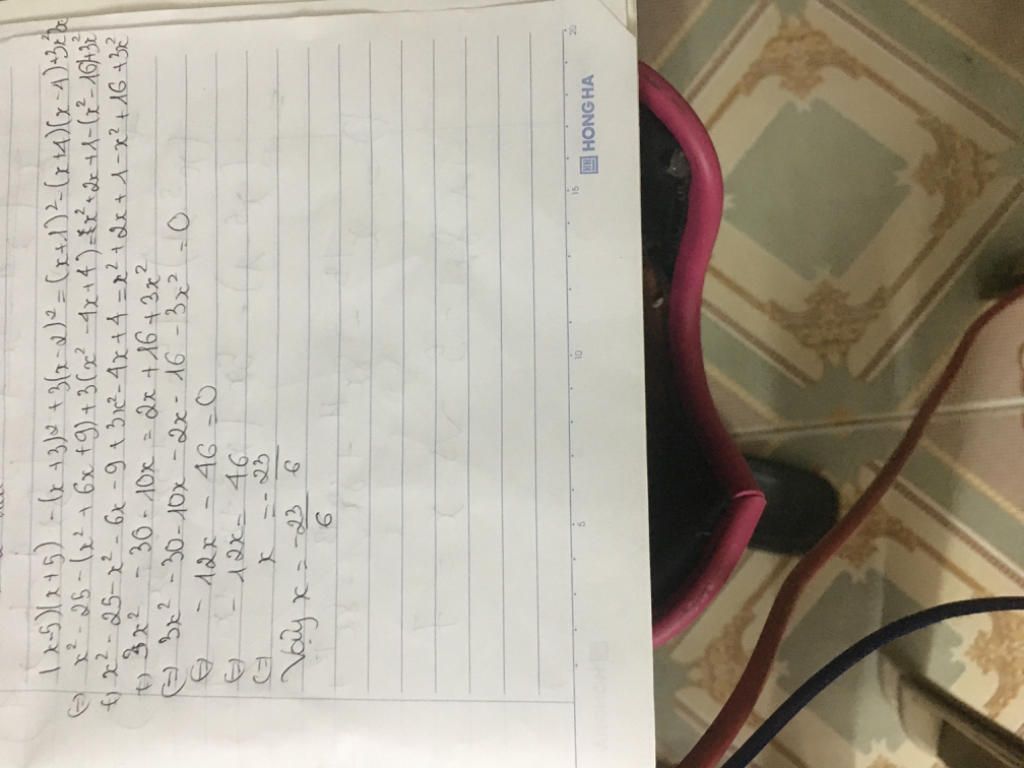 (x-5)(x+5) - (x+3)² + 3(x-2)² = (x+1)² - (x+4)(x-4) + 3x²
(=) x² - 25 - (x² + 6x + 9) + 3(x² - 4x + 4) = x² + 2x + 1 - (x² - 16) + 3x²
(=) x² - 25 - x² - 6x - 9 + 3x² - 4x + 4 = x² + 2x + 1 - x² + 16 + 3x²
(=) 3x² - 30 - 10x = 2x + 16 + 3x²
(=) 3x² - 30 - 10x - 2x - 16 - 3x² = 0
(=) - 12x - 46 = 0
(=) - 12x = 46
(=) x = -23/6
Vậy x = -23/6
5 10 15 20
HONG HA